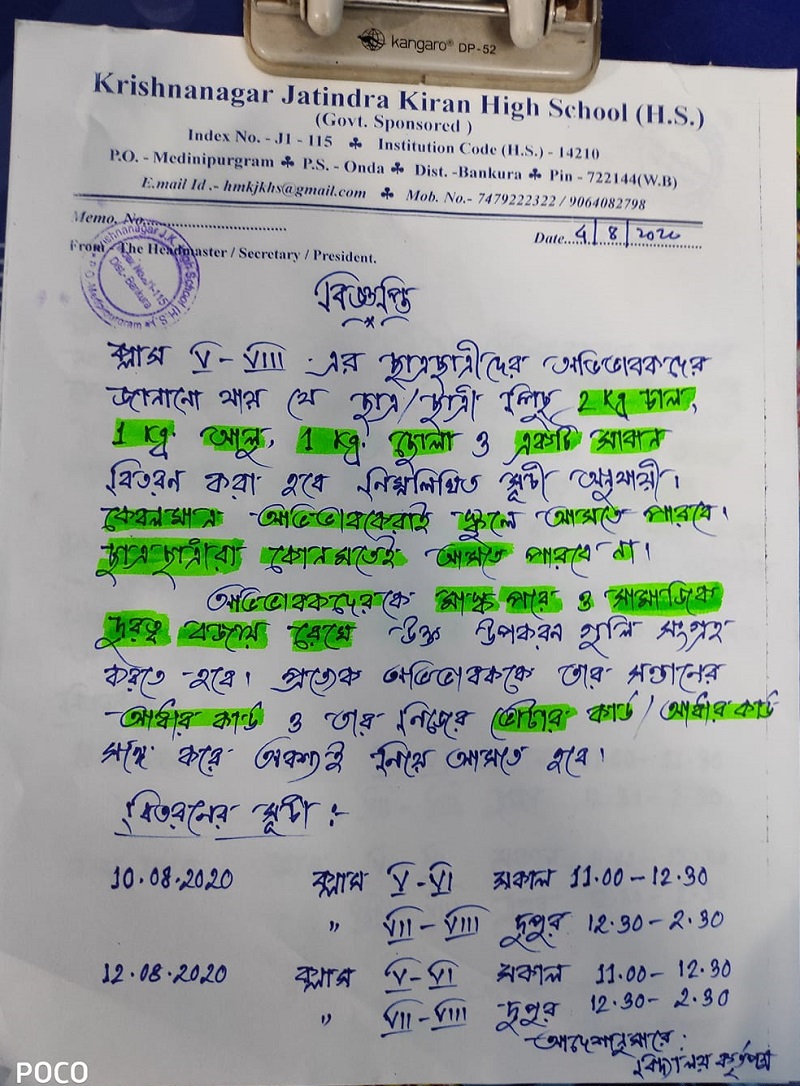 kangaro® DP-52
Krishnanagar Jatindra Kiran High School (H.S.)
(Govt. Sponsored )
Index No. - J1 - 115 ♣ Institution Code (H.S.) - 14210
P.O. - Medinipurgram ♣ P.S. - Onda ♣ Dist. -Bankura ♣ Pin - 722144(W.B)
E.mail Id .- hmkjkhs@gmail.com ♣ Mob. No.- 7479222322 / 9064082798
Memo. No.
Date....4/8/2020
From The Headmaster / Secretary / President.
বিজ্ঞপ্তি
ক্লাস V - VIII এর ছাত্রছাত্রীদের অভিভাবকদের
জানানো যায় যে ছাত্র/ছাত্রী পিছু 2 Kg চাল,
1 Kg. আলু, 1 Kg. ছোলা ও একটি সাবান
বিতরন করা হবে নিম্নলিখিত সূচী অনুযায়ী।
কেবলমাত্র অভিভাবকেরাই স্কুলে আসতে পারবে।
ছাত্রছাত্রীরা কোনমতেই আসতে পারবে না।
অভিভাবকদেরকে মাস্ক পরে ও সামাজিক
দূরত্ব বজায় রেখে উক্ত উপকরন গুলি সংগ্রহ
করতে হবে। প্রত্যেক অভিভাবককে তার সন্তানের
আধার কার্ড ও তার নিজের ভোটার কার্ড / আধার কার্ড
সঙ্গে করে অবশ্যই নিয়ে আসতে হবে।
বিতরনের সূচী :-
10.08.2020 ক্লাস V - VI সকাল 11.00 - 12.30
" VII - VIII দুপুর 12.30 - 2.30
12.08.2020 ক্লাস V - VI সকাল 11.00 - 12.30
" VII - VIII দুপুর 12.30 - 2.30
আদেশানুসারে :
বিদ্যালয় কর্তৃপক্ষ
POCO